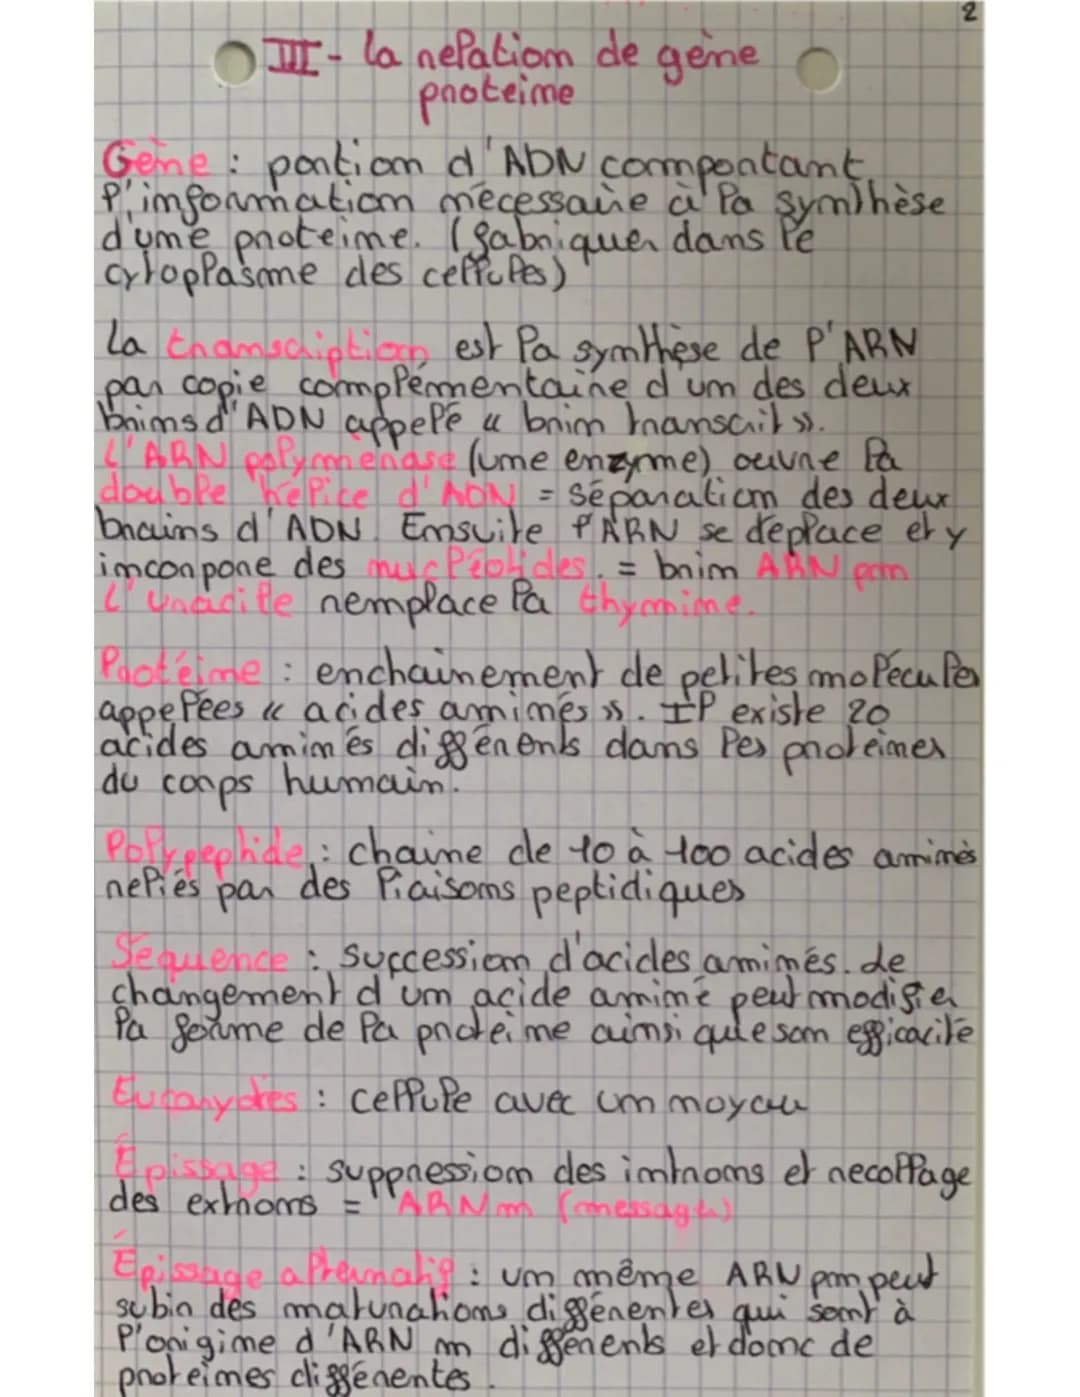 2
III - la relation de gène
proteine
Gène : portion d'ADN comportant
l'information nécessaire à la synthèse
d'une proteine. (fabriquer dans le
cytoplasme des cellules)
La transcription est la synthèse de l'ARN
par copie complémentaire d'un des deux
brins d'ADN appelé « brin transcrit ».
L'ARN polymérase (une enzyme) ouvre la
double hélice d'ADN = séparation des deux
brains d'ADN. Ensuite l'ARN se déplace et y
incorpore des nucléotides. = brin ARN pm
L'uracile remplace la thymine.
Protéine : enchainement de petites molécules
appelées « acides aminés ». Il existe 20
acides aminés différents dans les proteines
du corps humain.
Polypeptide : chaine de 10 à 100 acides aminés
reliés par des liaisons peptidiques
Séquence : succession d'acides aminés. Le
changement d'un acide aminé peut modifier
la forme de la protéine ainsi que son efficacité
Eucaryotes : cellule avec un noyau
Épissage : suppression des introns et recollage
des extrons = ARNm (messager)
Épissage alternatif : un même ARN pm peut
subir des maturations différentes qui sont à
l'origine d'ARN m différents et donc de
proteines différentes.